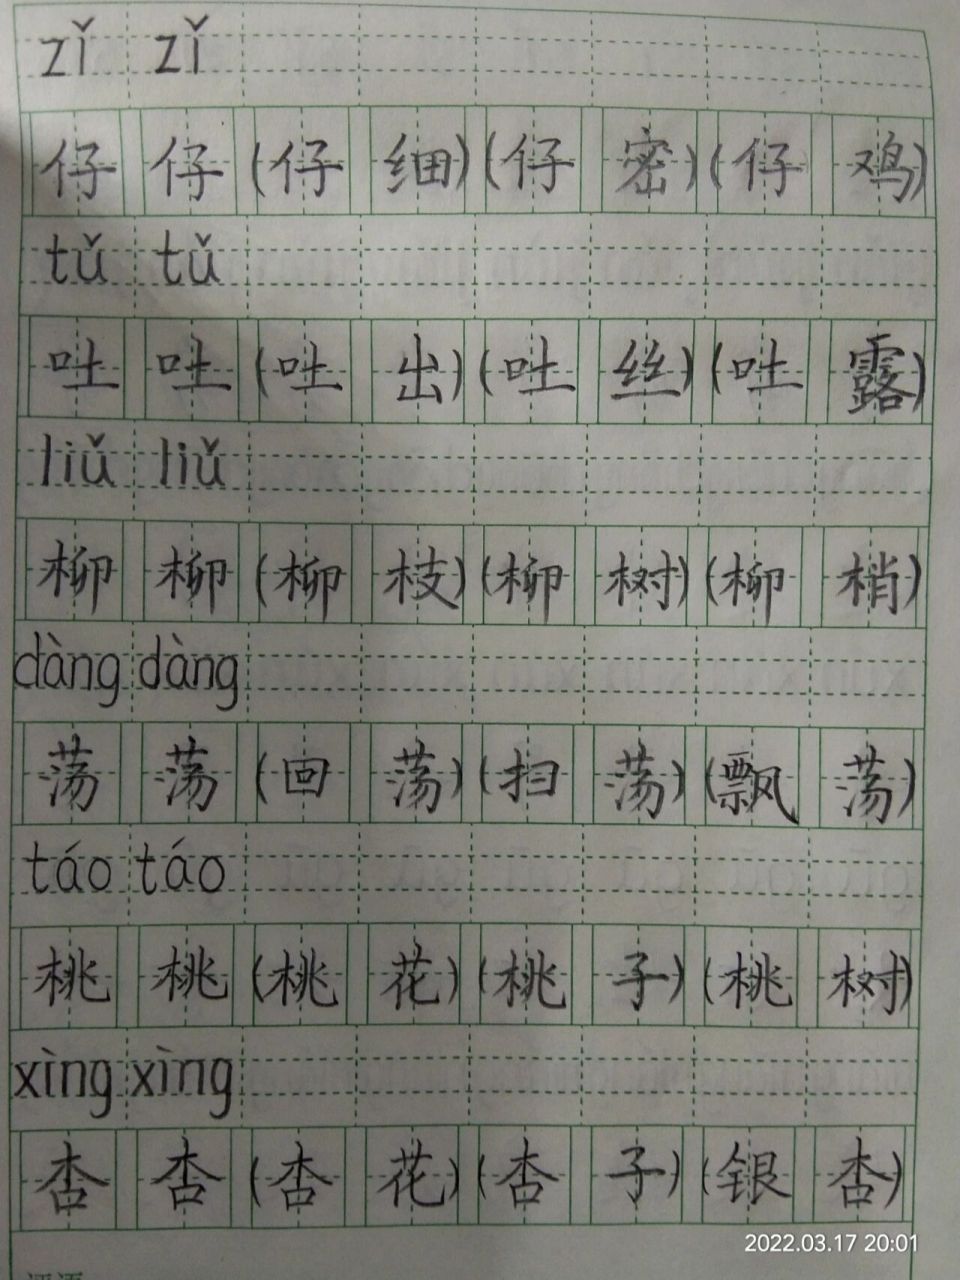 zǐ zǐ
仔 仔 (仔 细) (仔 密) (仔 鸡)
tǔ tǔ
吐 吐 (吐 出) (吐 丝) (吐 露)
liǔ liǔ
柳 柳 (柳 枝) (柳 树) (柳 梢)
dàng dàng
荡 荡 (回 荡) (扫 荡) (飘 荡)
táo táo
桃 桃 (桃 花) (桃 子) (桃 树)
xìng xìng
杏 杏 (杏 花) (杏 子) (银 杏)
2022.03.17 20:01